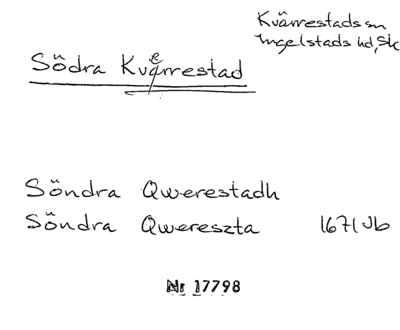 Kvärrestads sn
Ingelstads hd, Sk
Södra Kvärrestad
e
Söndra Qwerestadh
Söndra Qwereszta 1671 Jb
Nr 17798